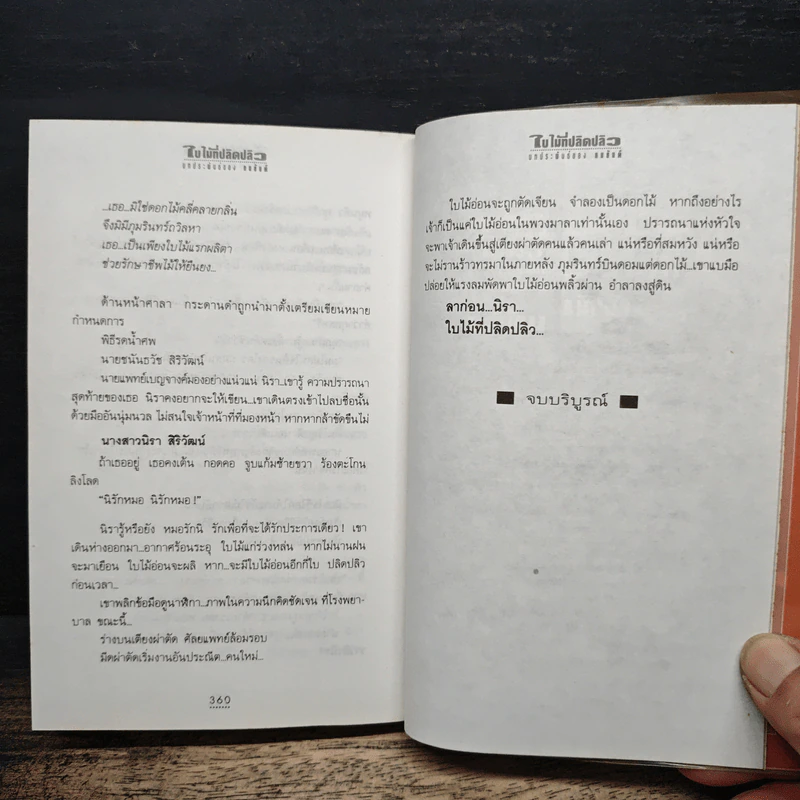 ใบไม้ที่ปลิดปลิว
บทประพันธ์ของ ทมยันตี
...เธอ...มิใช่ดอกไม้คลี่คลายกลิ่น
จึงมิมีภุมรินทร์ถวิลหา
เธอ...เป็นเพียงใบไม้แรกผลิตา
ช่วยรักษาชีพไม้ให้ยืนยง...
ด้านหน้าศาลา กระดานดำถูกนำมาตั้งเตรียมเขียนหมาย
กำหนดการ
พิธีรดน้ำศพ
นายชนันธวัช สิริวัฒน์
นายแพทย์เบญจางค์มองอย่างแน่วแน่ นิรา...เขารู้ ความปรารถนา
สุดท้ายของเธอ นิราคงอยากจะให้เขียน...เขาเดินตรงเข้าไปลบชื่อนั้น
ด้วยมืออันนุ่มนวล ไม่สนใจเจ้าหน้าที่ที่มองหน้า หากหากล้าขัดขืนไม่
นางสาวนิรา สิริวัฒน์
ถ้าเธออยู่ เธอคงเต้น กอดคอ จูบแก้มซ้ายขวา ร้องตะโกน
ลิงโลด
“นิรักหมอ นิรักหมอ!”
นิรารู้หรือยัง หมอรักนิ รักเพื่อที่จะได้รักประการเดียว! เขา
เดินห่างออกมา...อากาศร้อนระอุ ใบไม้แก่ร่วงหล่น หากไม่นานฝน
จะมาเยือน ใบไม้อ่อนจะผลิ หาก...จะมีใบไม้อ่อนอีกกี่ใบ ปลิดปลิว
ก่อนเวลา...
เขาพลิกข้อมือดูนาฬิกา...ภาพในความนึกคิดชัดเจน ที่โรงพยา-
บาล ขณะนี้...
ร่างบนเตียงผ่าตัด ศัลยแพทย์ล้อมรอบ
มีดผ่าตัดเริ่มงานอันประณีต...คนใหม่...
360
ใบไม้ที่ปลิดปลิว
บทประพันธ์ของ ทมยันตี
ใบไม้อ่อนจะถูกตัดเจียน จำลองเป็นดอกไม้ หากถึงอย่างไร
เจ้าก็เป็นแค่ใบไม้อ่อนในพวงมาลาเท่านั้นเอง ปรารถนาแห่งหัวใจ
จะพาเจ้าเดินขึ้นสู่เตียงผ่าตัดคนแล้วคนเล่า แน่หรือที่สมหวัง แน่หรือ
จะไม่รานร้าวทรมาในภายหลัง ภุมรินทร์บินดอมแต่ดอกไม้...เขาแบมือ
ปล่อยให้แรงลมพัดพาใบไม้อ่อนพลิ้วผ่าน อำลาลงสู่ดิน
ลาก่อน...นิรา...
ใบไม้ที่ปลิดปลิว...
จบบริบูรณ์